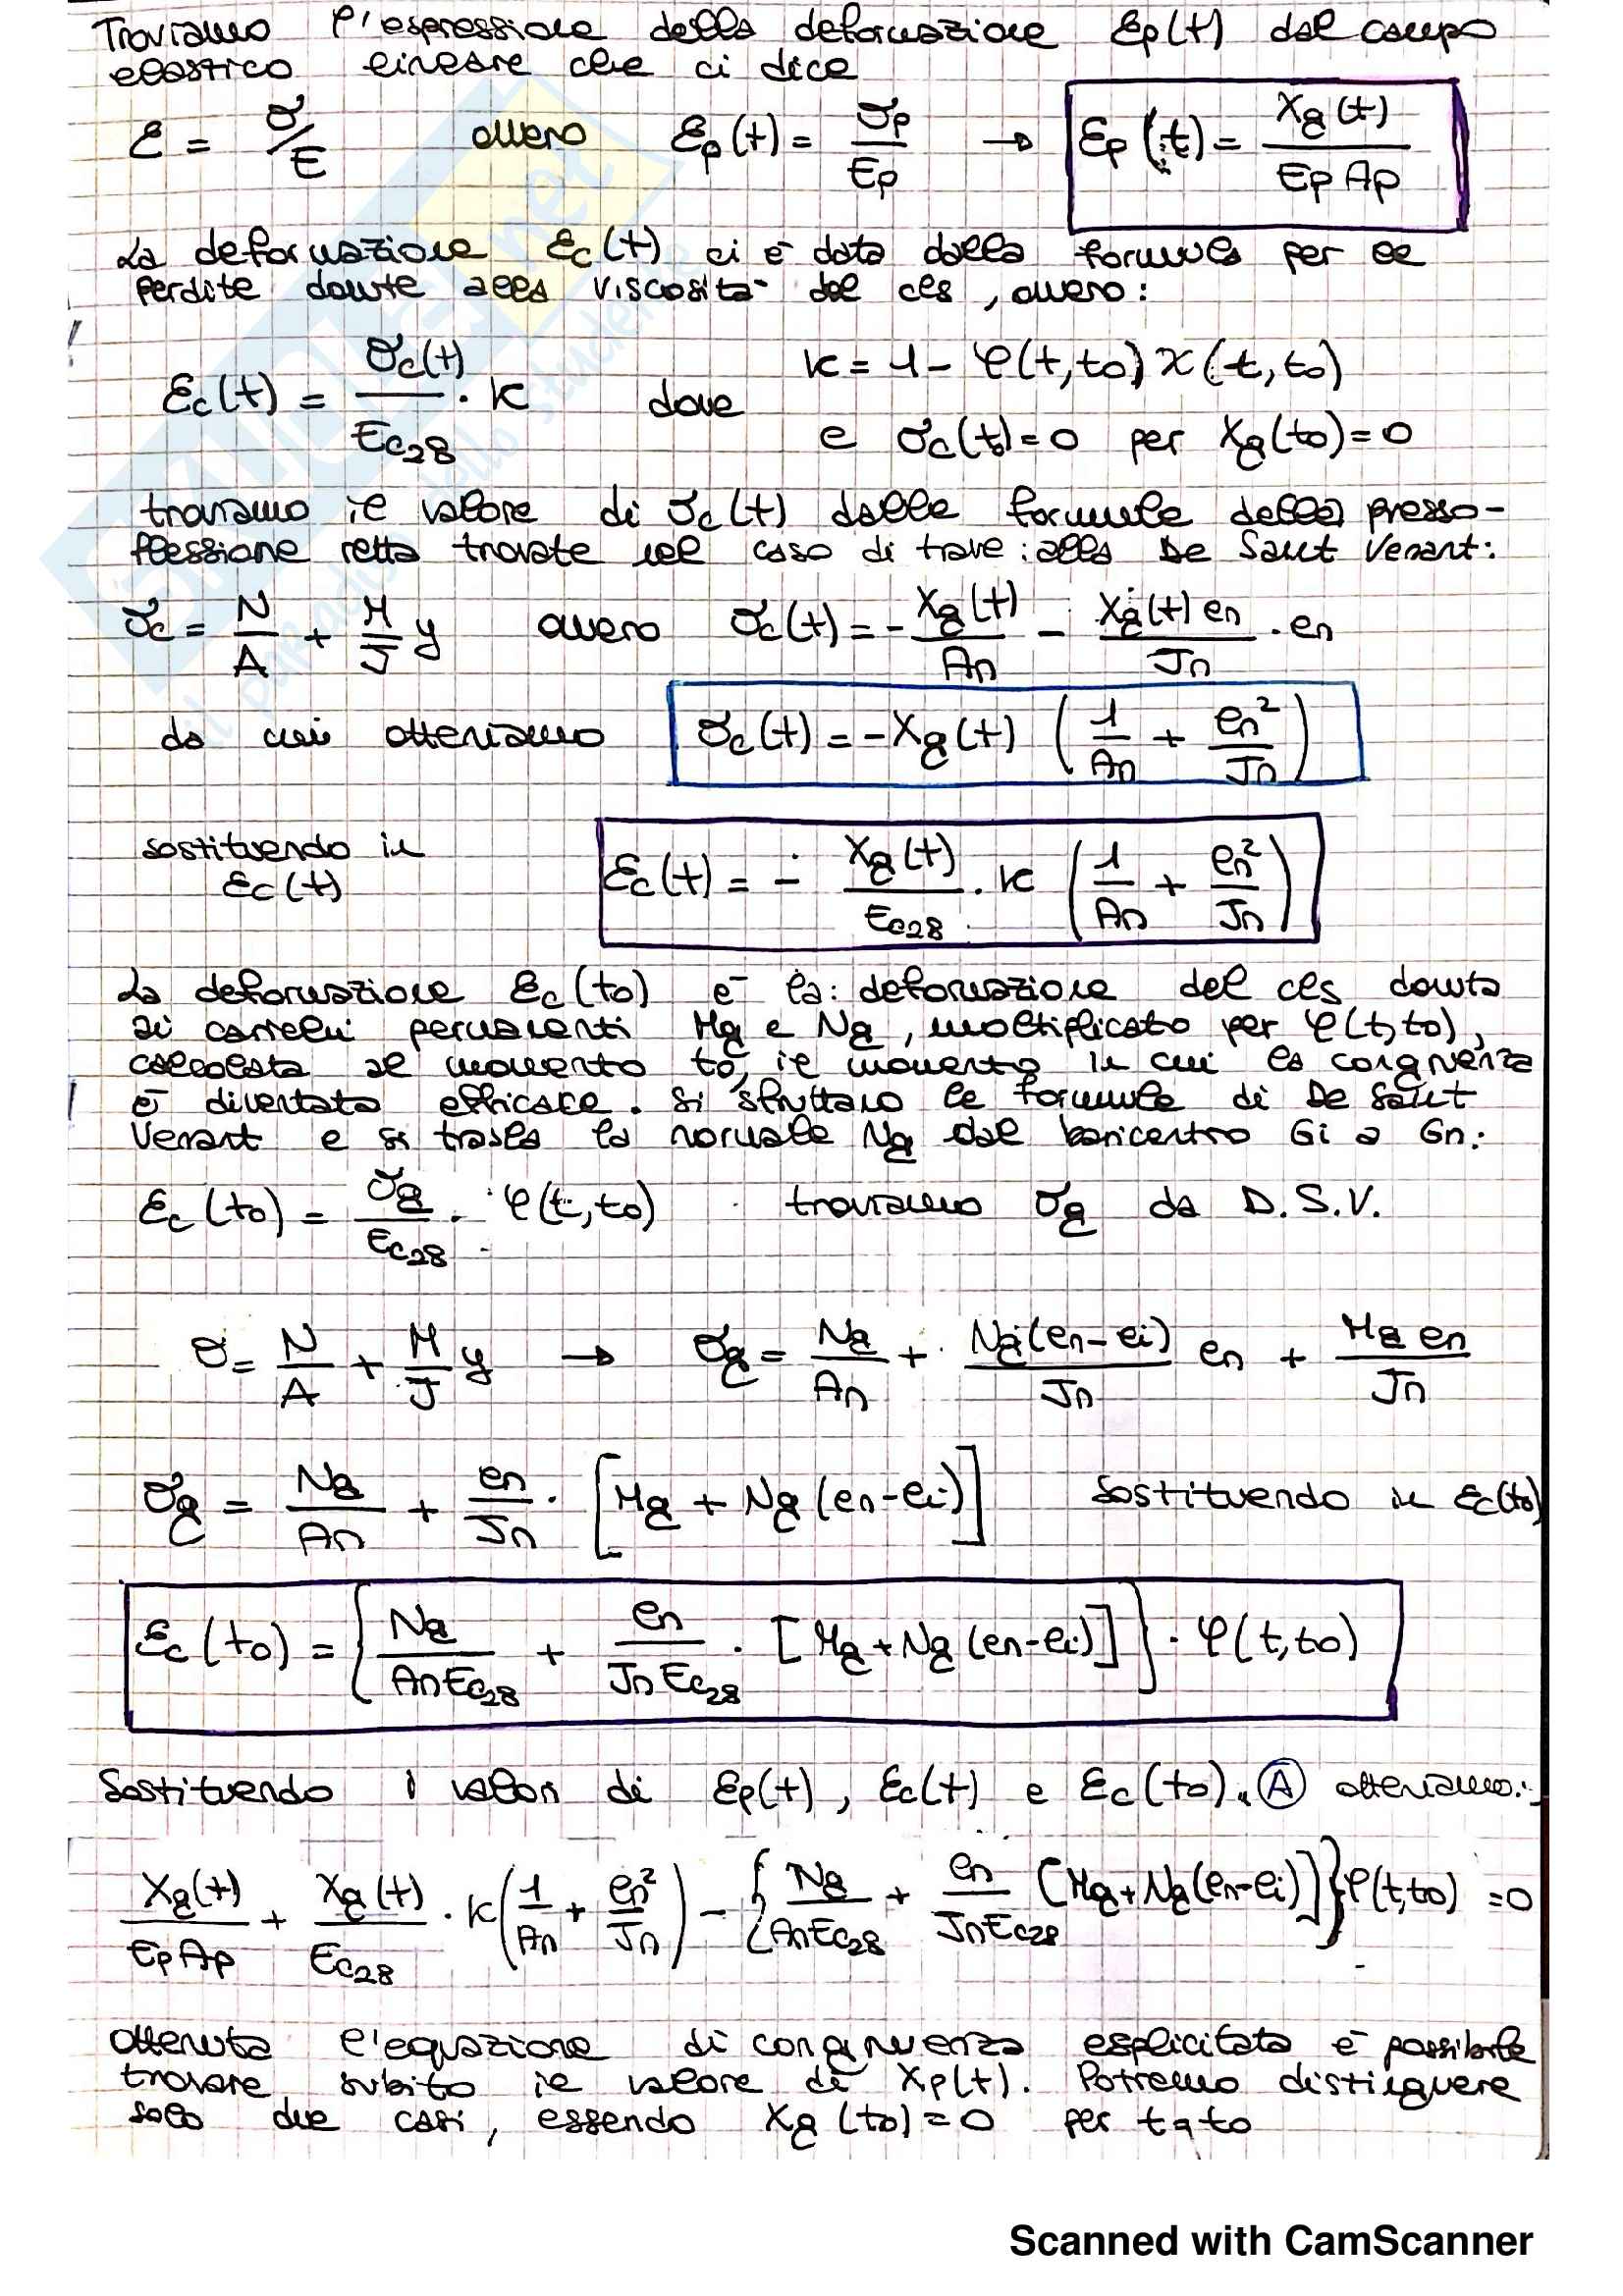 Troviamo l'espressione della deformazione εp(t) dal campo
elastico lineare che ci dice
ε = σ/E ovvero εp(t) = σp/Ep → εp(t) = Xg(t)/(Ep Ap)
La deformazione εc(t) ci è data dalla formula per le
perdite dovute alla viscosità del cls, ovvero:
εc(t) = σc(t)/Ec28 · K dove K = 1 - φ(t,to) χ(t,to)
e σc(t)=0 per Xg(to)=0
troviamo il valore di σc(t) dalle formule della presso-
flessione retta trovate nel caso di trave alla De Saint Venant:
σc = N/A + M/J y ovvero σc(t) = - Xg(t)/An - Xg(t) en/Jn · en
da cui otteniamo σc(t) = -Xg(t) (1/An + en²/Jn)
sostituendo in
εc(t) εc(t) = - Xg(t)/Ec28 · K (1/An + en²/Jn)
La deformazione εc(to) è la deformazione del cls dovuta
ai carichi permanenti Mg e Ng, moltiplicato per φ(t,to),
calcolata al momento to, il momento in cui la congruenza
è diventata efficace. Si sfruttano le formule di De Saint
Venant e si trasla la normale Ng dal baricentro Gi a Gn:
εc(to) = σg/Ec28 · φ(t,to) troviamo σg da D.S.V.
σ = N/A + M/J y → σg = Ng/An + Ng(en-ei)/Jn en + Mg en/Jn
σg = Ng/An + en/Jn · [Mg + Ng(en-ei)] Sostituendo in εc(to)
εc(to) = {Ng/(An Ec28) + en/(Jn Ec28) · [Mg + Ng(en-ei)]} · φ(t,to)
Sostituendo i valori di εp(t), εc(t) e εc(to). Ⓐ otteniamo:
Xg(t)/(Ep Ap) + Xg(t)/Ec28 · K(1/An + en²/Jn) - {Ng/(An Ec28) + en/(Jn Ec28) [Mg + Ng(en-ei)]}φ(t,to) = 0
ottenuta l'equazione di congruenza esplicitata è possibile
trovare subito il valore di Xp(t). Potremo distinguere
solo due casi, essendo Xg(to)=0 per t=to
SKUOLA.net
il paradiso dello studente
Scanned with CamScanner